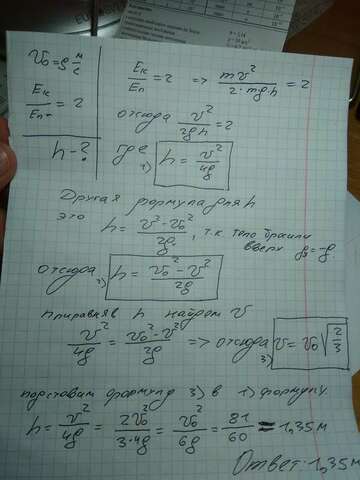 v₀ = 9 м/с
Eк/Eп = 2
h - ?
Eк/Eп = 2 => mv²/2·mg·h = 2
отсюда v²/2gh = 2
где 1) h = v²/4g
Другая формула для h
это h = v² - v₀²/2g, т.к тело бросили
вверх g = -g.
отсюда 2) h = v₀² - v²/2g
приравняв h найдем v
v²/4g = v₀² - v²/2g => отсюда 3) v = v₀ √2/3
подставим формулу 3) в 1) формулу
h = v²/4g = 2v₀²/3·4g = v₀²/6g = 81/60 = 1,35 м
Ответ: 1,35 м